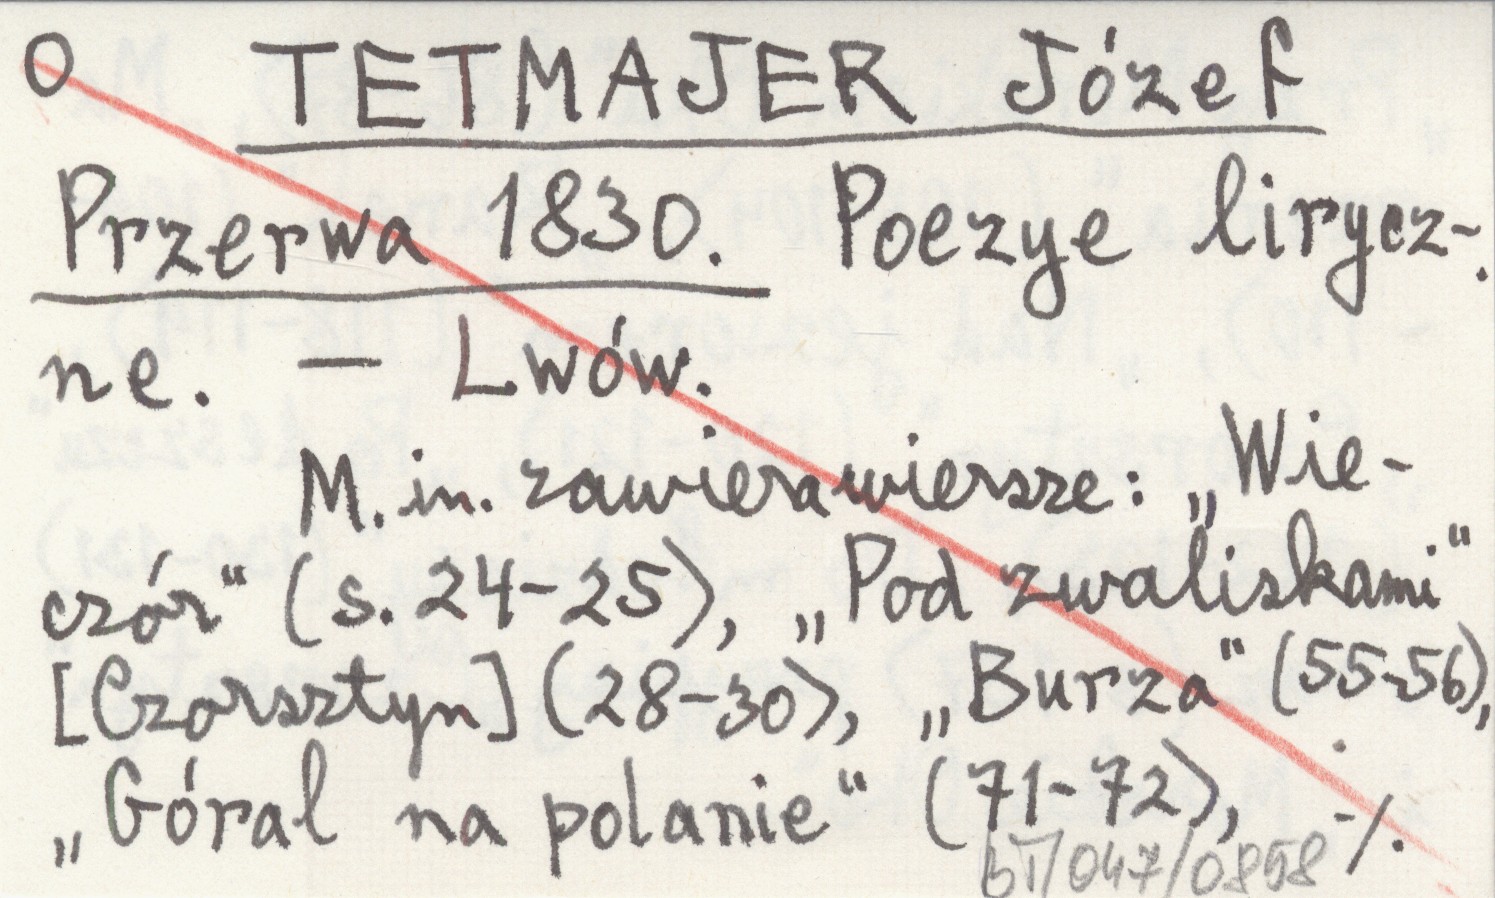 O TETMAJER Józef
Przerwa 1830. Poezye lirycz-
ne. — Lwów.
M. in. zawiera wiersze: „Wie-
czór“ (s. 24-25), „Pod zwaliskami“
[Czorsztyn] (28-30), „Burza“ (55-56),
„Góral na polanie“ (71-72), ./.
bT/047/0858